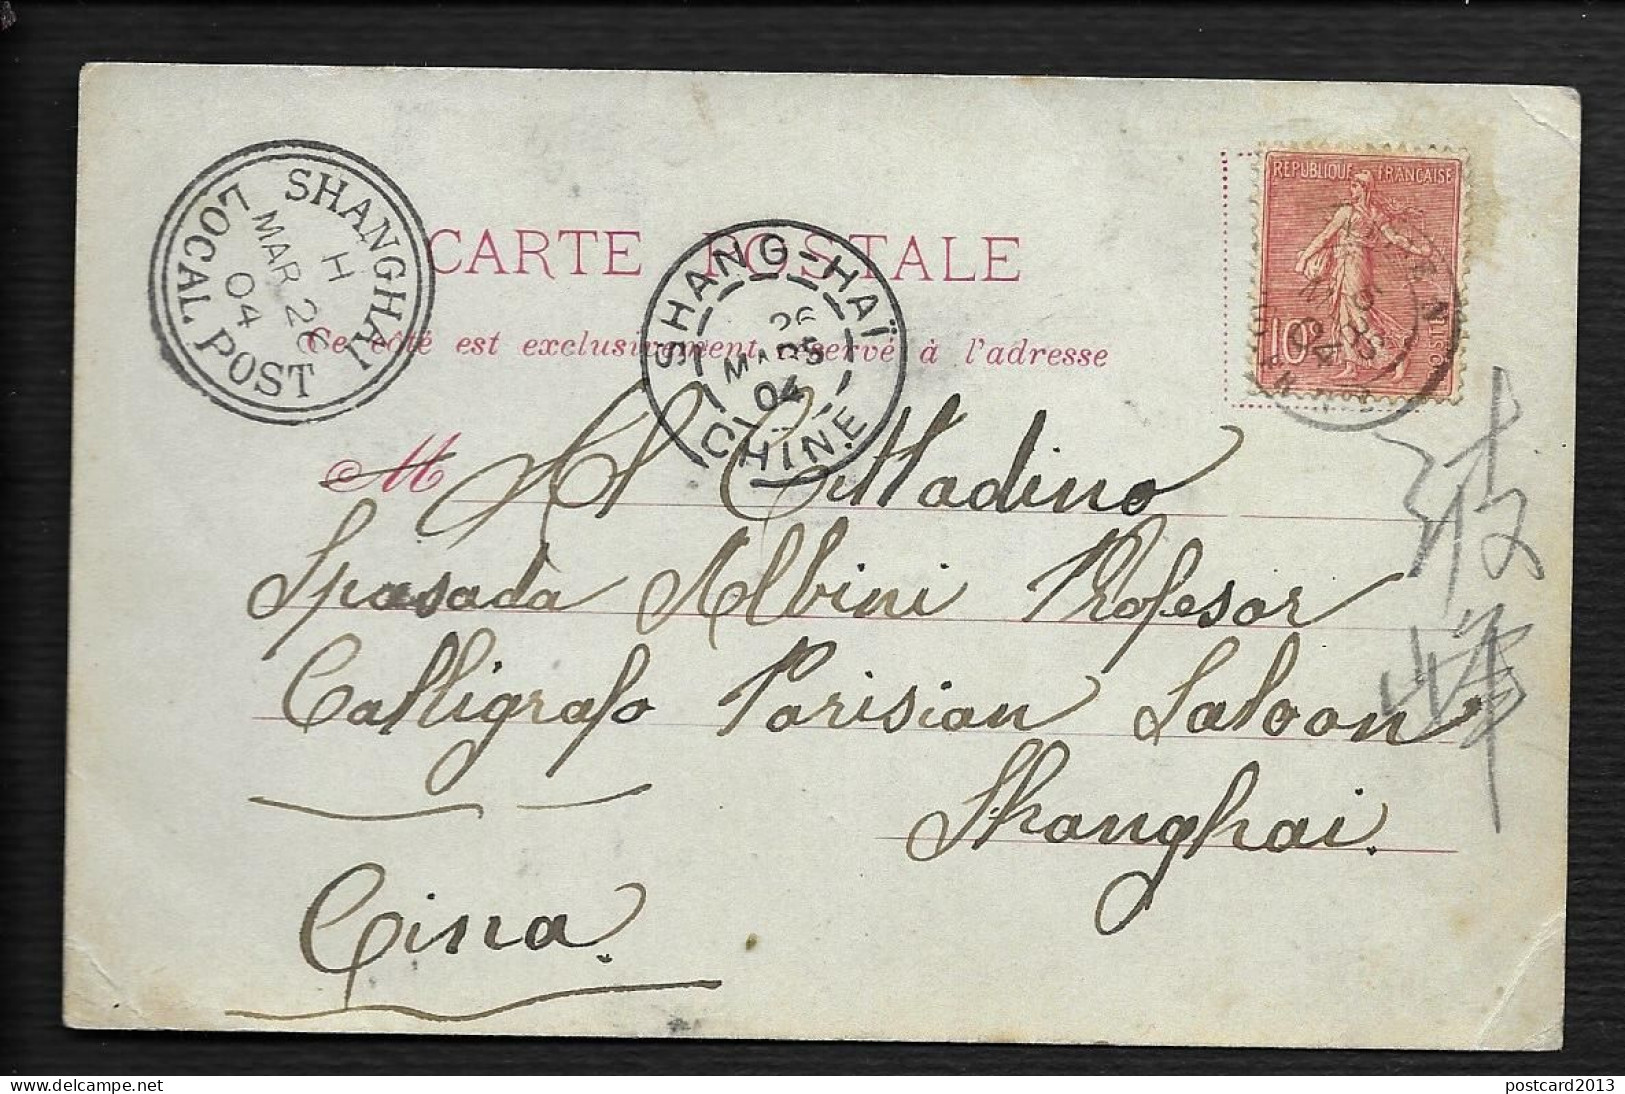 SHANGHAI LOCAL POST
H
MAR 26
04
RÉPUBLIQUE FRANÇAISE
10c
CARTE POSTALE
SHANG-HAÏ
26
MARS
04
CHINE
Ce côté est exclusivement réservé à l'adresse
M
Al Cittadino
Spasada Albini Profesor
Calligrafo Parisian Saloon
Shanghai.
Cina.
delcampe.net
postcard2013